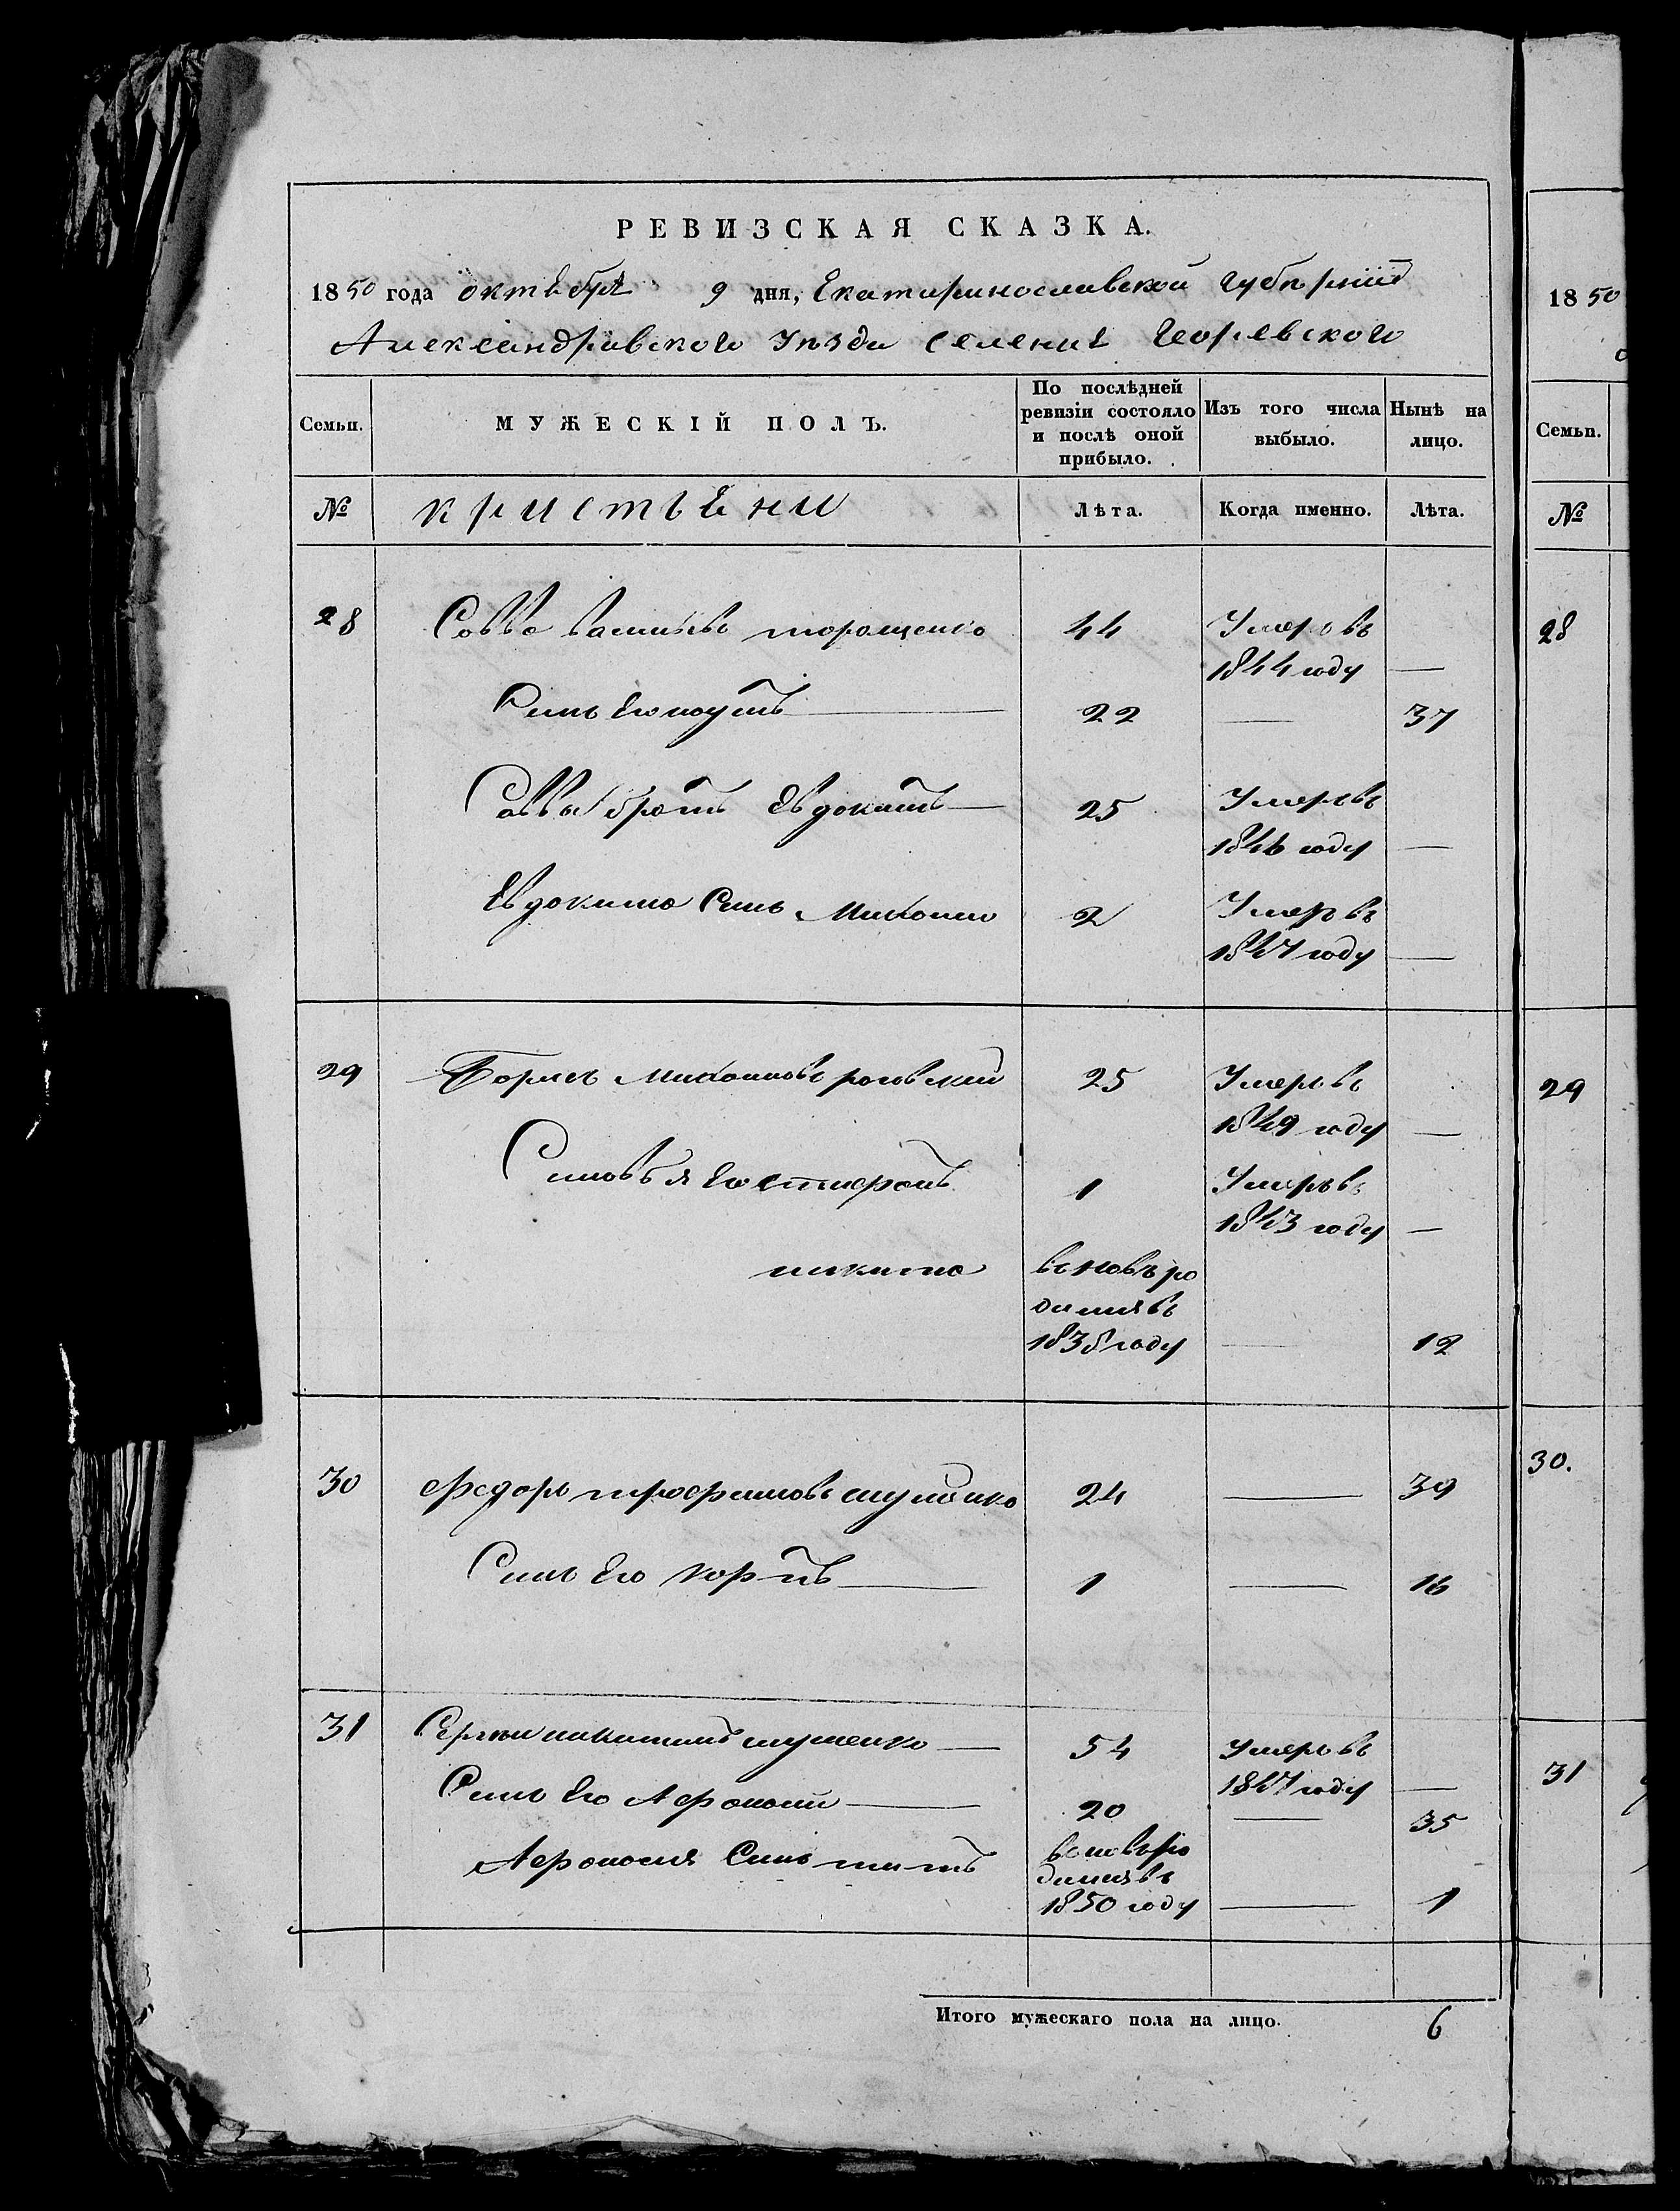 РЕВИЗСКАЯ СКАЗКА.
1850 года октебря 9 дня, Екатеринославской губернии
Александравского уезда селения Георгевского
Семьи. МУЖЕСКІЙ ПОЛЪ. По послѣдней ревизіи состояло и послѣ оной прибыло. Изъ того числа выбыло. Нынѣ на лицо.
№ кристьяни Лѣта. Когда именно. Лѣта.
28 Савва васильевъ торащенко 44 Умеръ въ
1844 году —
Синъ Его 22 — 37
Саввы братъ Евдокимъ — 25 Умеръ въ
1846 году —
Евдокима Синъ 2 Умеръ въ
1847 году —
29 Борисъ роговский 25 Умеръ въ
1849 году —
Синовья Его 1 Умеръ въ
1843 году —
никита въновъ ро
дился въ
1838 году — 12
30 Федоръ трофимовъ 24 — 39
Синъ Его карпъ — 1 — 16
31 Сергеи никитинъ — 54 Умеръ въ
1847 году —
Синъ Его Афонасий — 20 — 35
Афонасия Синъ титъ въновъ ро
дился въ
1850 году — 1
Итого мужескаго пола на лицо. 6
1850
Семьи.
№
28
29
30.
31